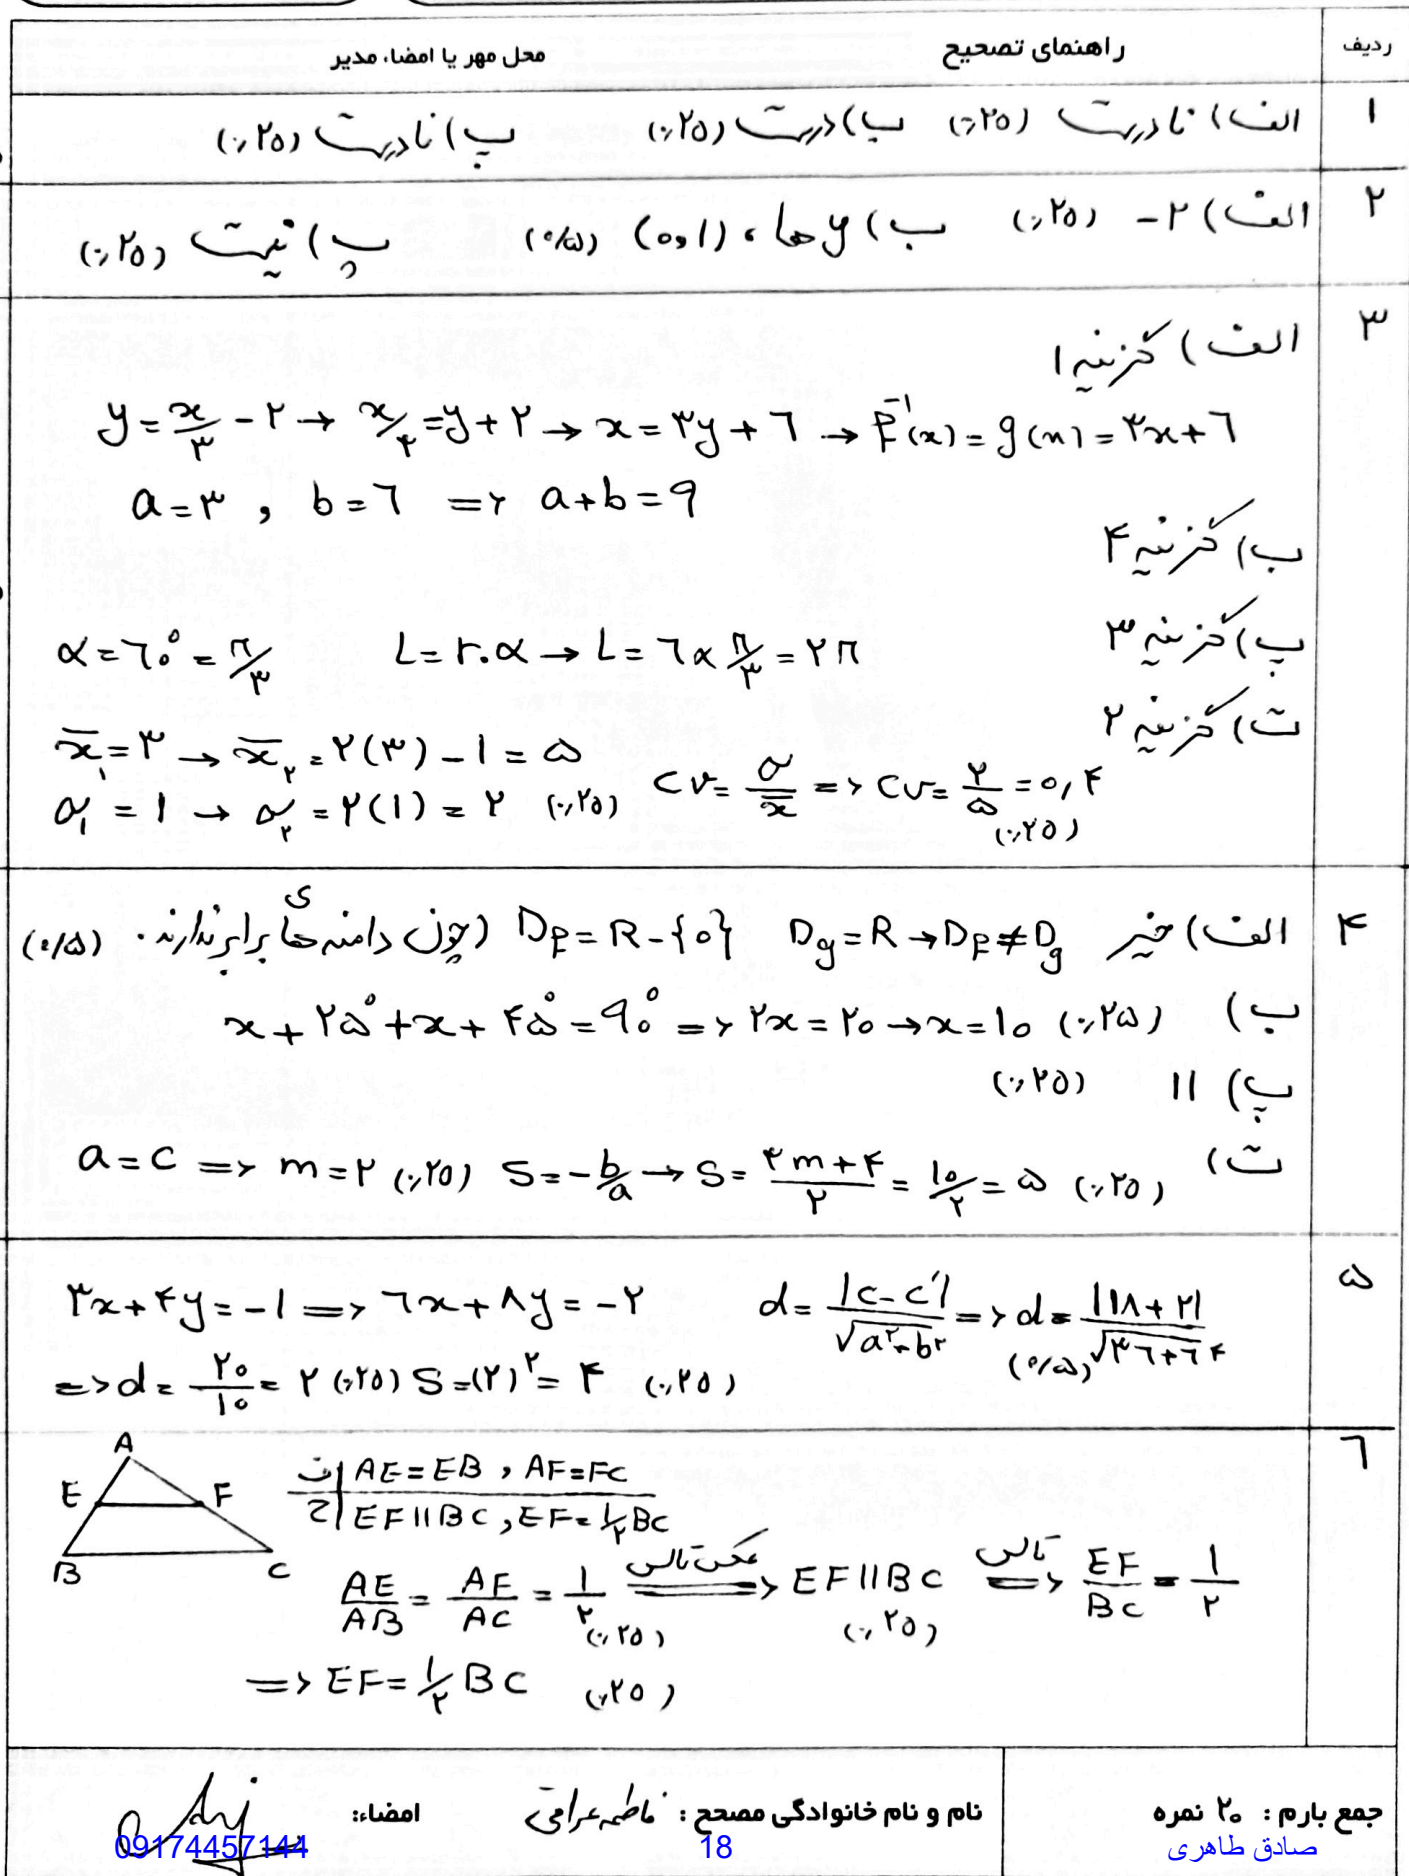 ردیف راهنمای تصحیح محل مهر یا امضاء مدیر
۱ الف) نادرست (۰٫۲۵) ب) درست (۰٫۲۵) پ) نادرست (۰٫۲۵)
۲ الف) ۲- (۰٫۲۵) ب) yها ، (۱و۰) (۰/۵) پ) نیست (۰٫۲۵)
۳ الف) گزینه ۱
y = x/۳ - ۲ → x/۳ = y + ۲ → x = ۳y + ۶ → f⁻¹(x) = g(x) = ۳x + ۶
a = ۳ , b = ۶ => a + b = ۹
ب) گزینه ۴
پ) گزینه ۳ α = ۶۰° = π/۳ L = r.α → L = ۶ × π/۳ = ۲π
ت) گزینه ۲
x̄₁ = ۳ → x̄₂ = ۲(۳) - ۱ = ۵
σ₁ = ۱ → σ₂ = ۲(۱) = ۲ (۰٫۲۵) CV = σ/x̄ => CV = ۲/۵ = ۰٫۴ (۰٫۲۵)
۴ الف) خیر D_f = R - {۰} D_g = R → D_f ≠ D_g (چون دامنه های برابر ندارند. (۰/۵)
ب) x + ۲۵° + x + ۴۵° = ۹۰° => ۲x = ۲۰ → x = ۱۰ (۰٫۲۵)
پ) ۱۱ (۰٫۲۵)
ت) a = c => m = ۲ (۰٫۲۵) S = -b/a → S = (۳m + ۴)/۲ = ۱۰/۲ = ۵ (۰٫۲۵)
۵ ۳x + ۴y = -۱ => ۶x + ۸y = -۲ d = |c - c'|/√(a² + b²) => d = |۱۸ + ۲|/√(۳۶ + ۶۴) (۰/۵)
=> d = ۲۰/۱۰ = ۲ (۰٫۲۵) S = (۲)² = ۴ (۰٫۲۵)
۶ A E F B C
ف | AE = EB , AF = FC
ح | EF || BC , EF = ۱/۲ BC
AE/AB = AF/AC = ۱/۲ (۰٫۲۵) عکس تالس => EF || BC (۰٫۲۵) تالس => EF/BC = ۱/۲
=> EF = ۱/۲ BC (۰٫۲۵)
جمع بارم : ۲۰ نمره نام و نام خانوادگی مصحح : فاطمه عراقی امضاء:
صادق طاهری 18 09174457144